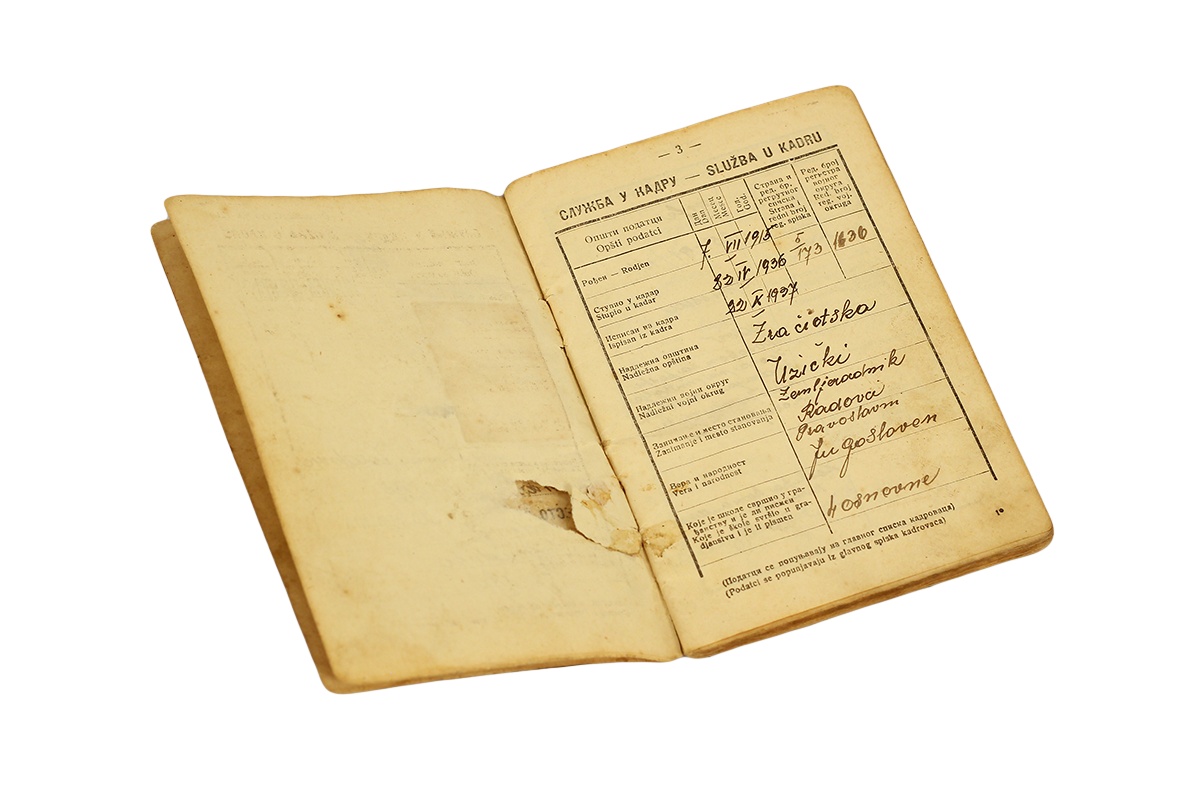 — 3 —
СЛУЖБА У КАДРУ — SLUŽBA U KADRU
Општи податци
Opšti podatci
Дан
Dan
Месец
Mesec
Год.
God.
Страна и
ред. бр.
регрутног
списка
Strana i
redni broj
reg. spiska
Ред. број
регистра
војног
округа
Red. broj
reg. voj.
okruga
Рођен — Rodjen
7. VII 1915
5
173
1636
Ступио у кадар
Stupio u kadar
22 IV 1936
Исписан из кадра
Ispisan iz kadra
22 X 1937
Надлежна општина
Nadležna opština
Надлежни војни округ
Nadležni vojni okrug
Užički
Занимање и место становања
Zanimanje i mesto stanovanja
Zemljoradnik
Radovci
Вера и народност
Vera i narodnost
Pravoslavni
Jugosloven
Које је школе свршио у гра-
ђанству и је ли писмен
Koje je škole svršio u gra-
djanstvu i je li pismen
4 osnovne
(Податци се попуњавају из главног списка кадроваца)
(Podatci se popunjavaju iz glavnog spiska kadrovaca)